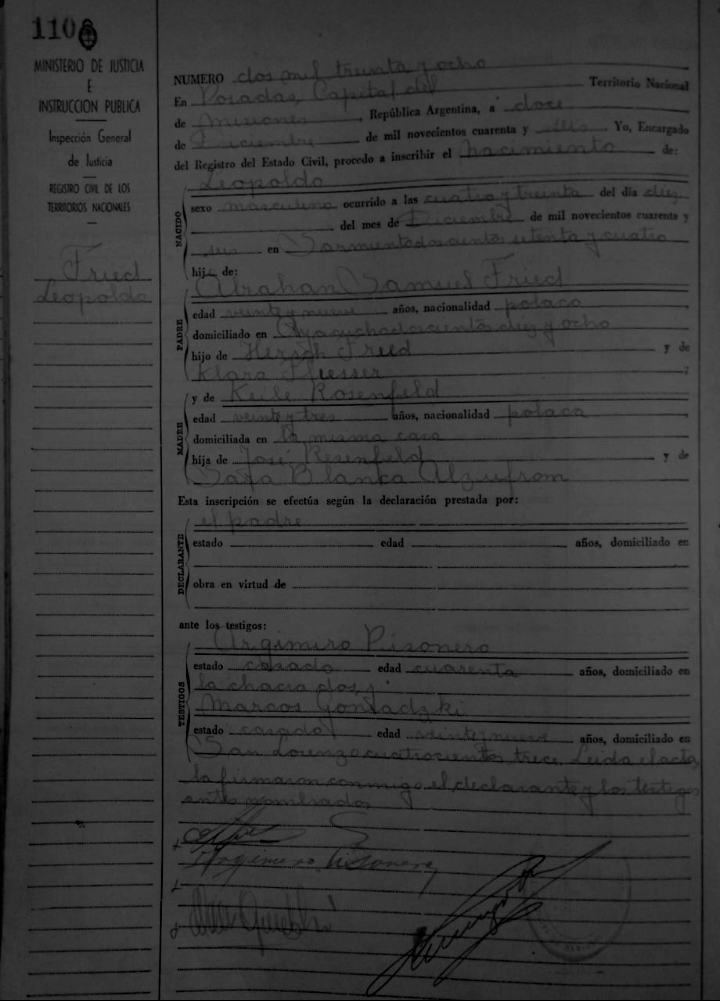 110
MINISTERIO DE JUSTICIA
E
INSTRUCCION PUBLICA
Inspección General
de Justicia
REGISTRO CIVIL DE LOS
TERRITORIOS NACIONALES
Fried
Leopoldo
NUMERO dos mil treinta y ocho
En Posadas, Capital del Territorio Nacional
de Misiones, República Argentina, a doce
de Diciembre de mil novecientos cuarenta y seis Yo, Encargado
del Registro del Estado Civil, procedo a inscribir el nacimiento de:
Leopoldo
NACIDO
sexo masculino ocurrido a las cuatro y treinta del día diez
del mes de Diciembre de mil novecientos cuarenta y
seis en Sarmiento doscientos setenta y cuatro
hijo de:
Abrahan Samuel Fried
PADRE
edad veinte y nueve años, nacionalidad polaco
domiciliado en Ayacucho doscientos diez y ocho
hijo de Hersch Fried y de
Klara
MADRE
y de Keile Rosenfeld
edad veinte y tres años, nacionalidad polaca
domiciliada en la misma casa
hija de José Rosenfeld y de
Sara Blanca
Esta inscripción se efectúa según la declaración prestada por:
el padre
DECLARANTE
estado edad años, domiciliado en
obra en virtud de
ante los testigos:
Argimiro Pisonero
TESTIGOS
estado casado edad cuarenta años, domiciliado en
la chacra dos, y
Marcos
estado casado edad veinte y nueve años, domiciliado en
San Lorenzo cuatrocientos trece, Leida el acta,
la firmaron conmigo el declarante y los testigos
antes nombrados
Argimiro Pisonero